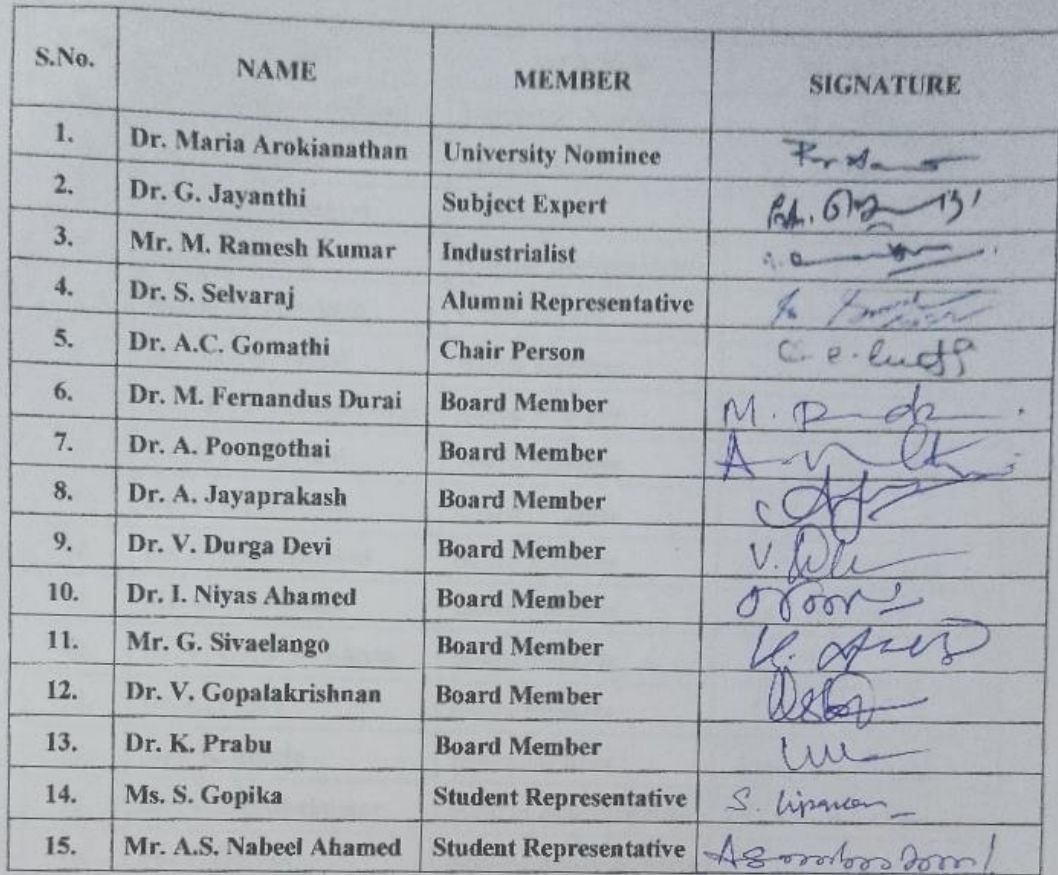 S.No. NAME MEMBER SIGNATURE
1. Dr. Maria Arokianathan University Nominee
2. Dr. G. Jayanthi Subject Expert
3. Mr. M. Ramesh Kumar Industrialist
4. Dr. S. Selvaraj Alumni Representative
5. Dr. A.C. Gomathi Chair Person
6. Dr. M. Fernandus Durai Board Member
7. Dr. A. Poongothai Board Member
8. Dr. A. Jayaprakash Board Member
9. Dr. V. Durga Devi Board Member
10. Dr. I. Niyas Ahamed Board Member
11. Mr. G. Sivaelango Board Member
12. Dr. V. Gopalakrishnan Board Member
13. Dr. K. Prabu Board Member
14. Ms. S. Gopika Student Representative
15. Mr. A.S. Nabeel Ahamed Student Representative